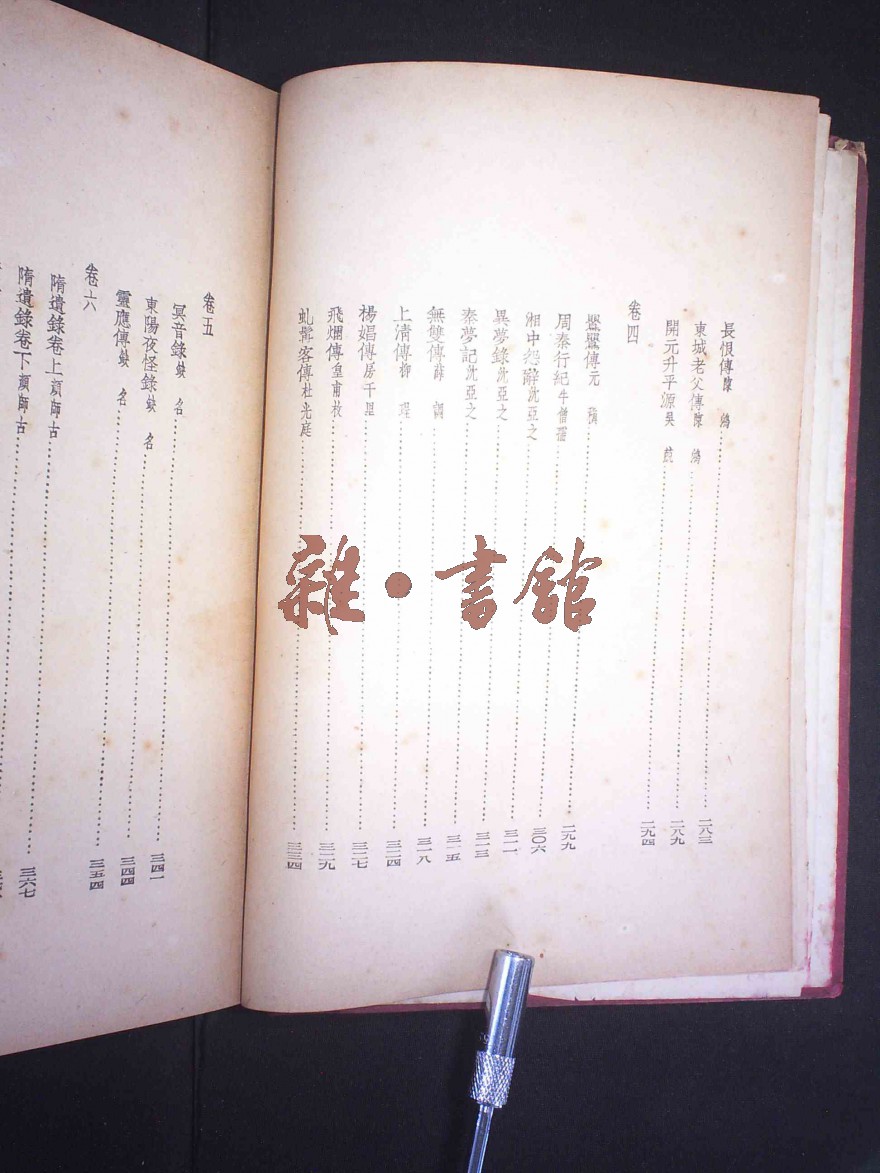 長恨傳 陳 鴻……二八三
東城老父傳 陳 鴻……二八九
開元升平源 吳 兢……二九四
卷四
鶯鶯傳 元 稹……二九九
周秦行紀 牛僧孺……三〇六
湘中怨辭 沈亞之……三一一
異夢錄 沈亞之……三一三
秦夢記 沈亞之……三一五
無雙傳 薛 調……三一八
上清傳 柳 珵……三二四
楊娼傳 房千里……三二七
飛煙傳 皇甫枚……三二九
虬髯客傳 杜光庭……三三四
卷五
冥音錄 缺 名……三四一
東陽夜怪錄 缺 名……三四四
靈應傳 缺 名……三五四
卷六
隋遺錄卷上 顏師古……三六七
隋遺錄卷下 顏師古……
雜·書館